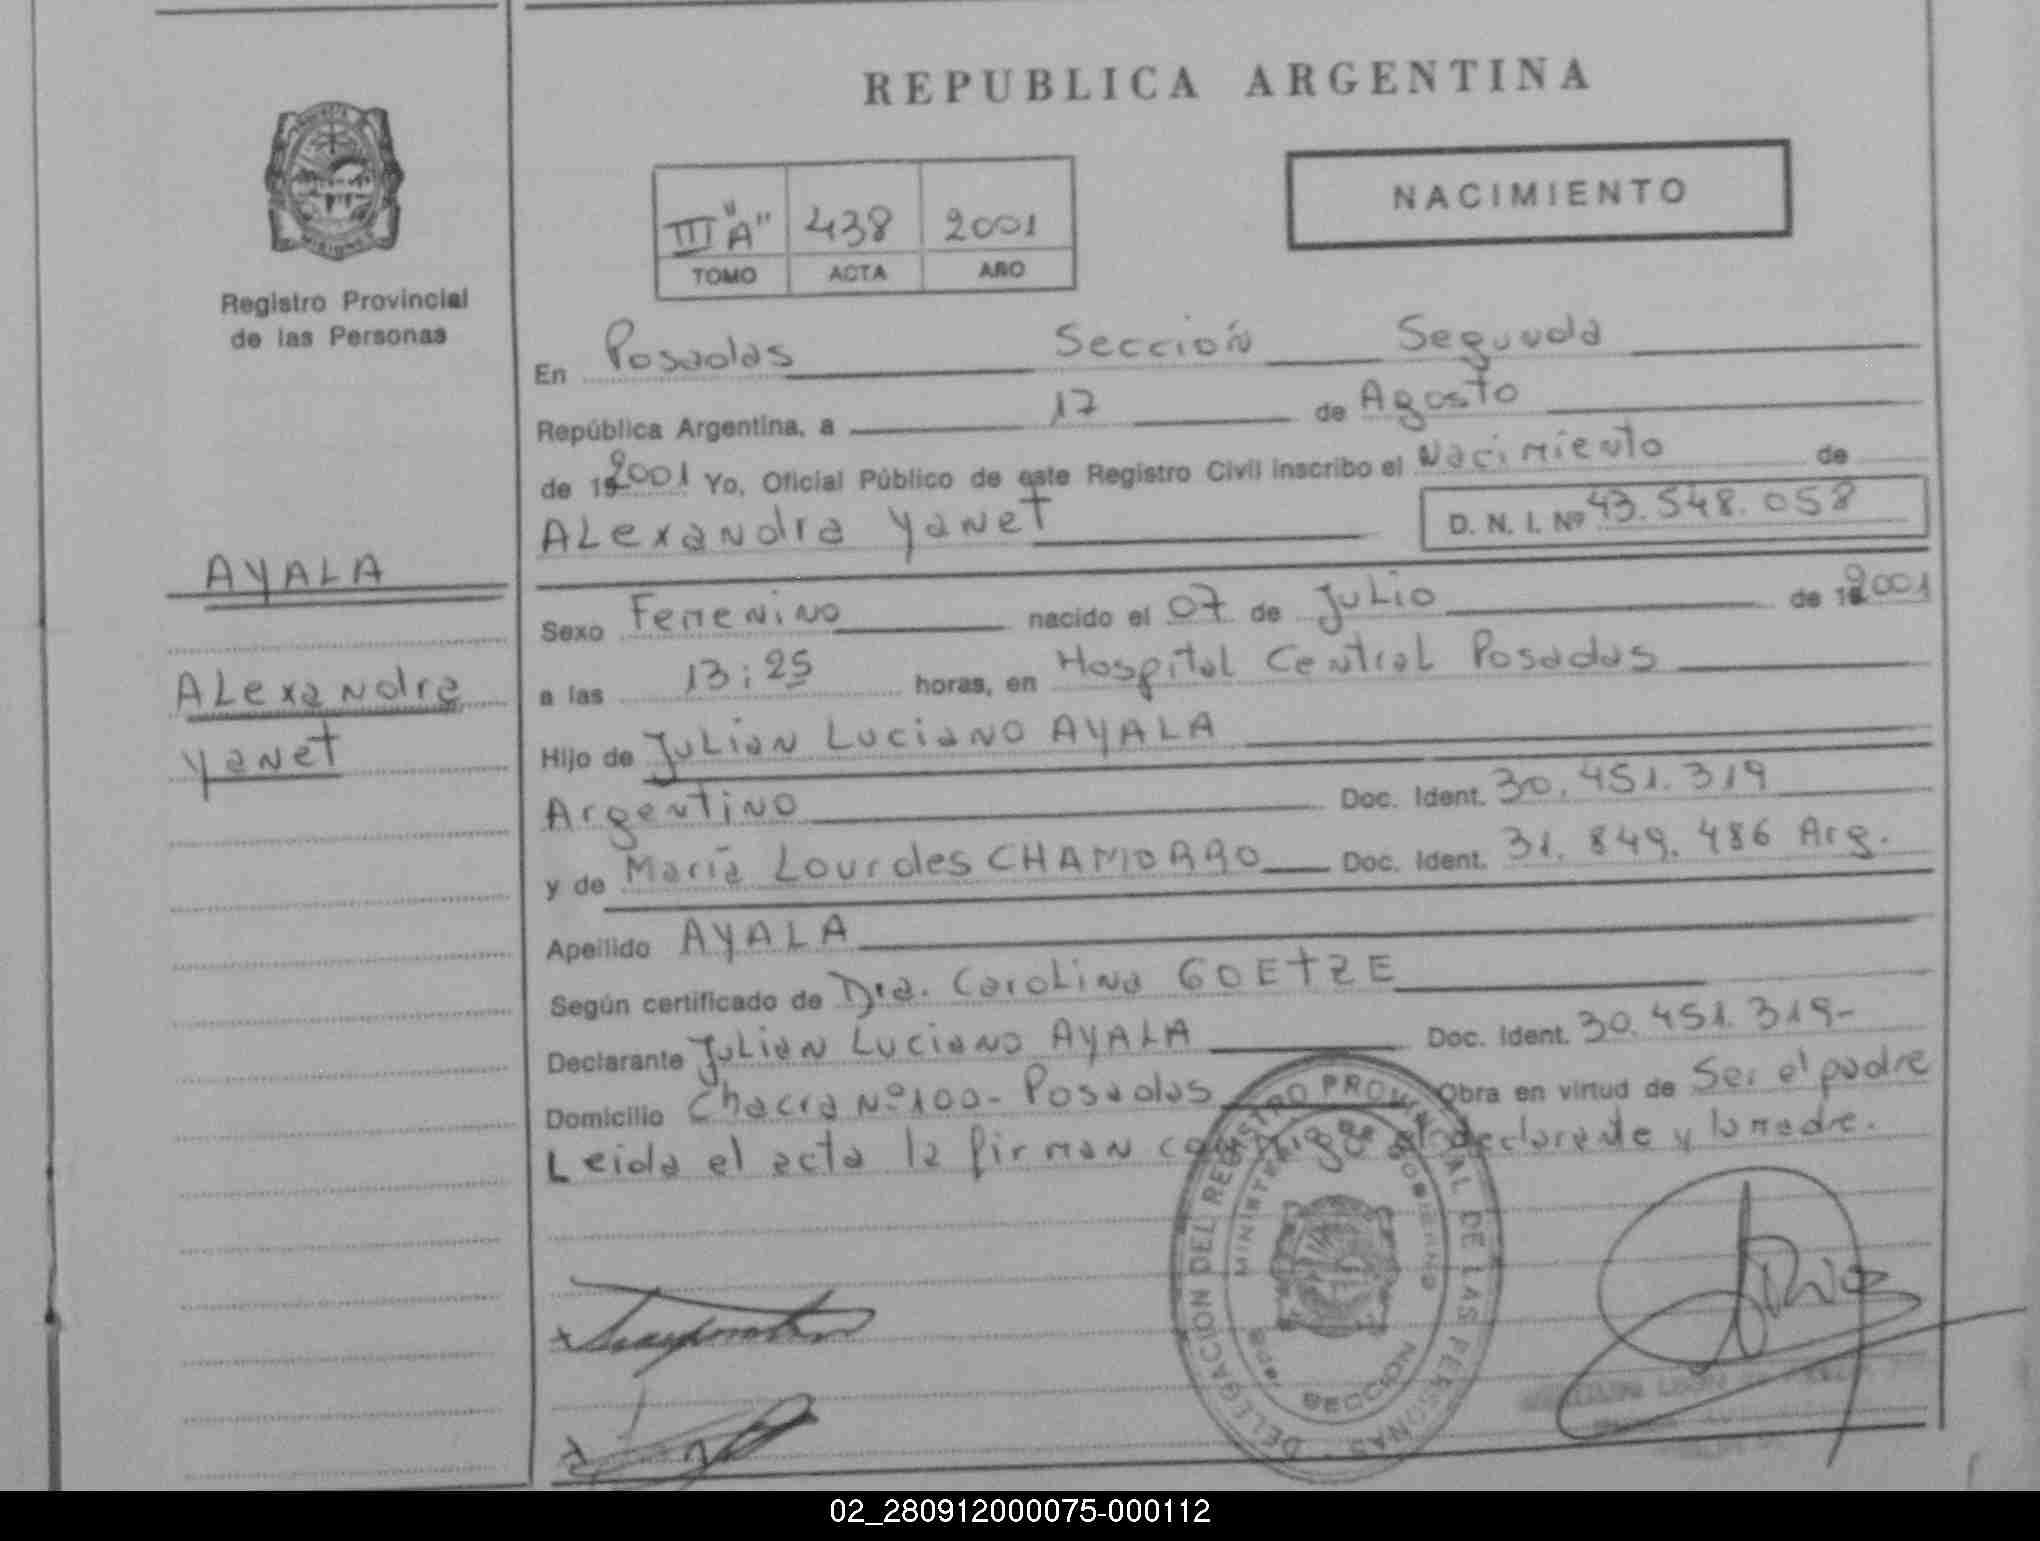 REPUBLICA ARGENTINA
NACIMIENTO
III "A" 438 2001
TOMO ACTA AÑO
Registro Provincial
de las Personas
AYALA
Alexandra
Yanet
En Posadas Sección Segunda
República Argentina, a 17 de Agosto
de 19 2001 Yo, Oficial Público de este Registro Civil inscribo el Nacimiento de
Alexandra Yanet D. N. I. Nº 43.548.058
Sexo Femenino nacido el 07 de Julio de 19 2001
a las 13:25 horas, en Hospital Central Posadas
Hijo de Julian Luciano AYALA
Argentino Doc. Ident. 30.451.319
y de María Lourdes CHAMORRO Doc. Ident. 31.849.486 Arg.
Apellido AYALA
Según certificado de Dra. Carolina GOETZE
Declarante Julian Luciano AYALA Doc. Ident. 30.451.319-
Domicilio Chacra Nº 100- Posadas Obra en virtud de Ser el padre
Leida el acta la firman conmigo el declarante y la madre.
DELEGACION DEL REGISTRO PROVINCIAL DE LAS PERSONAS
MINISTERIO GOBIERNO
SECCION
02_280912000075-000112